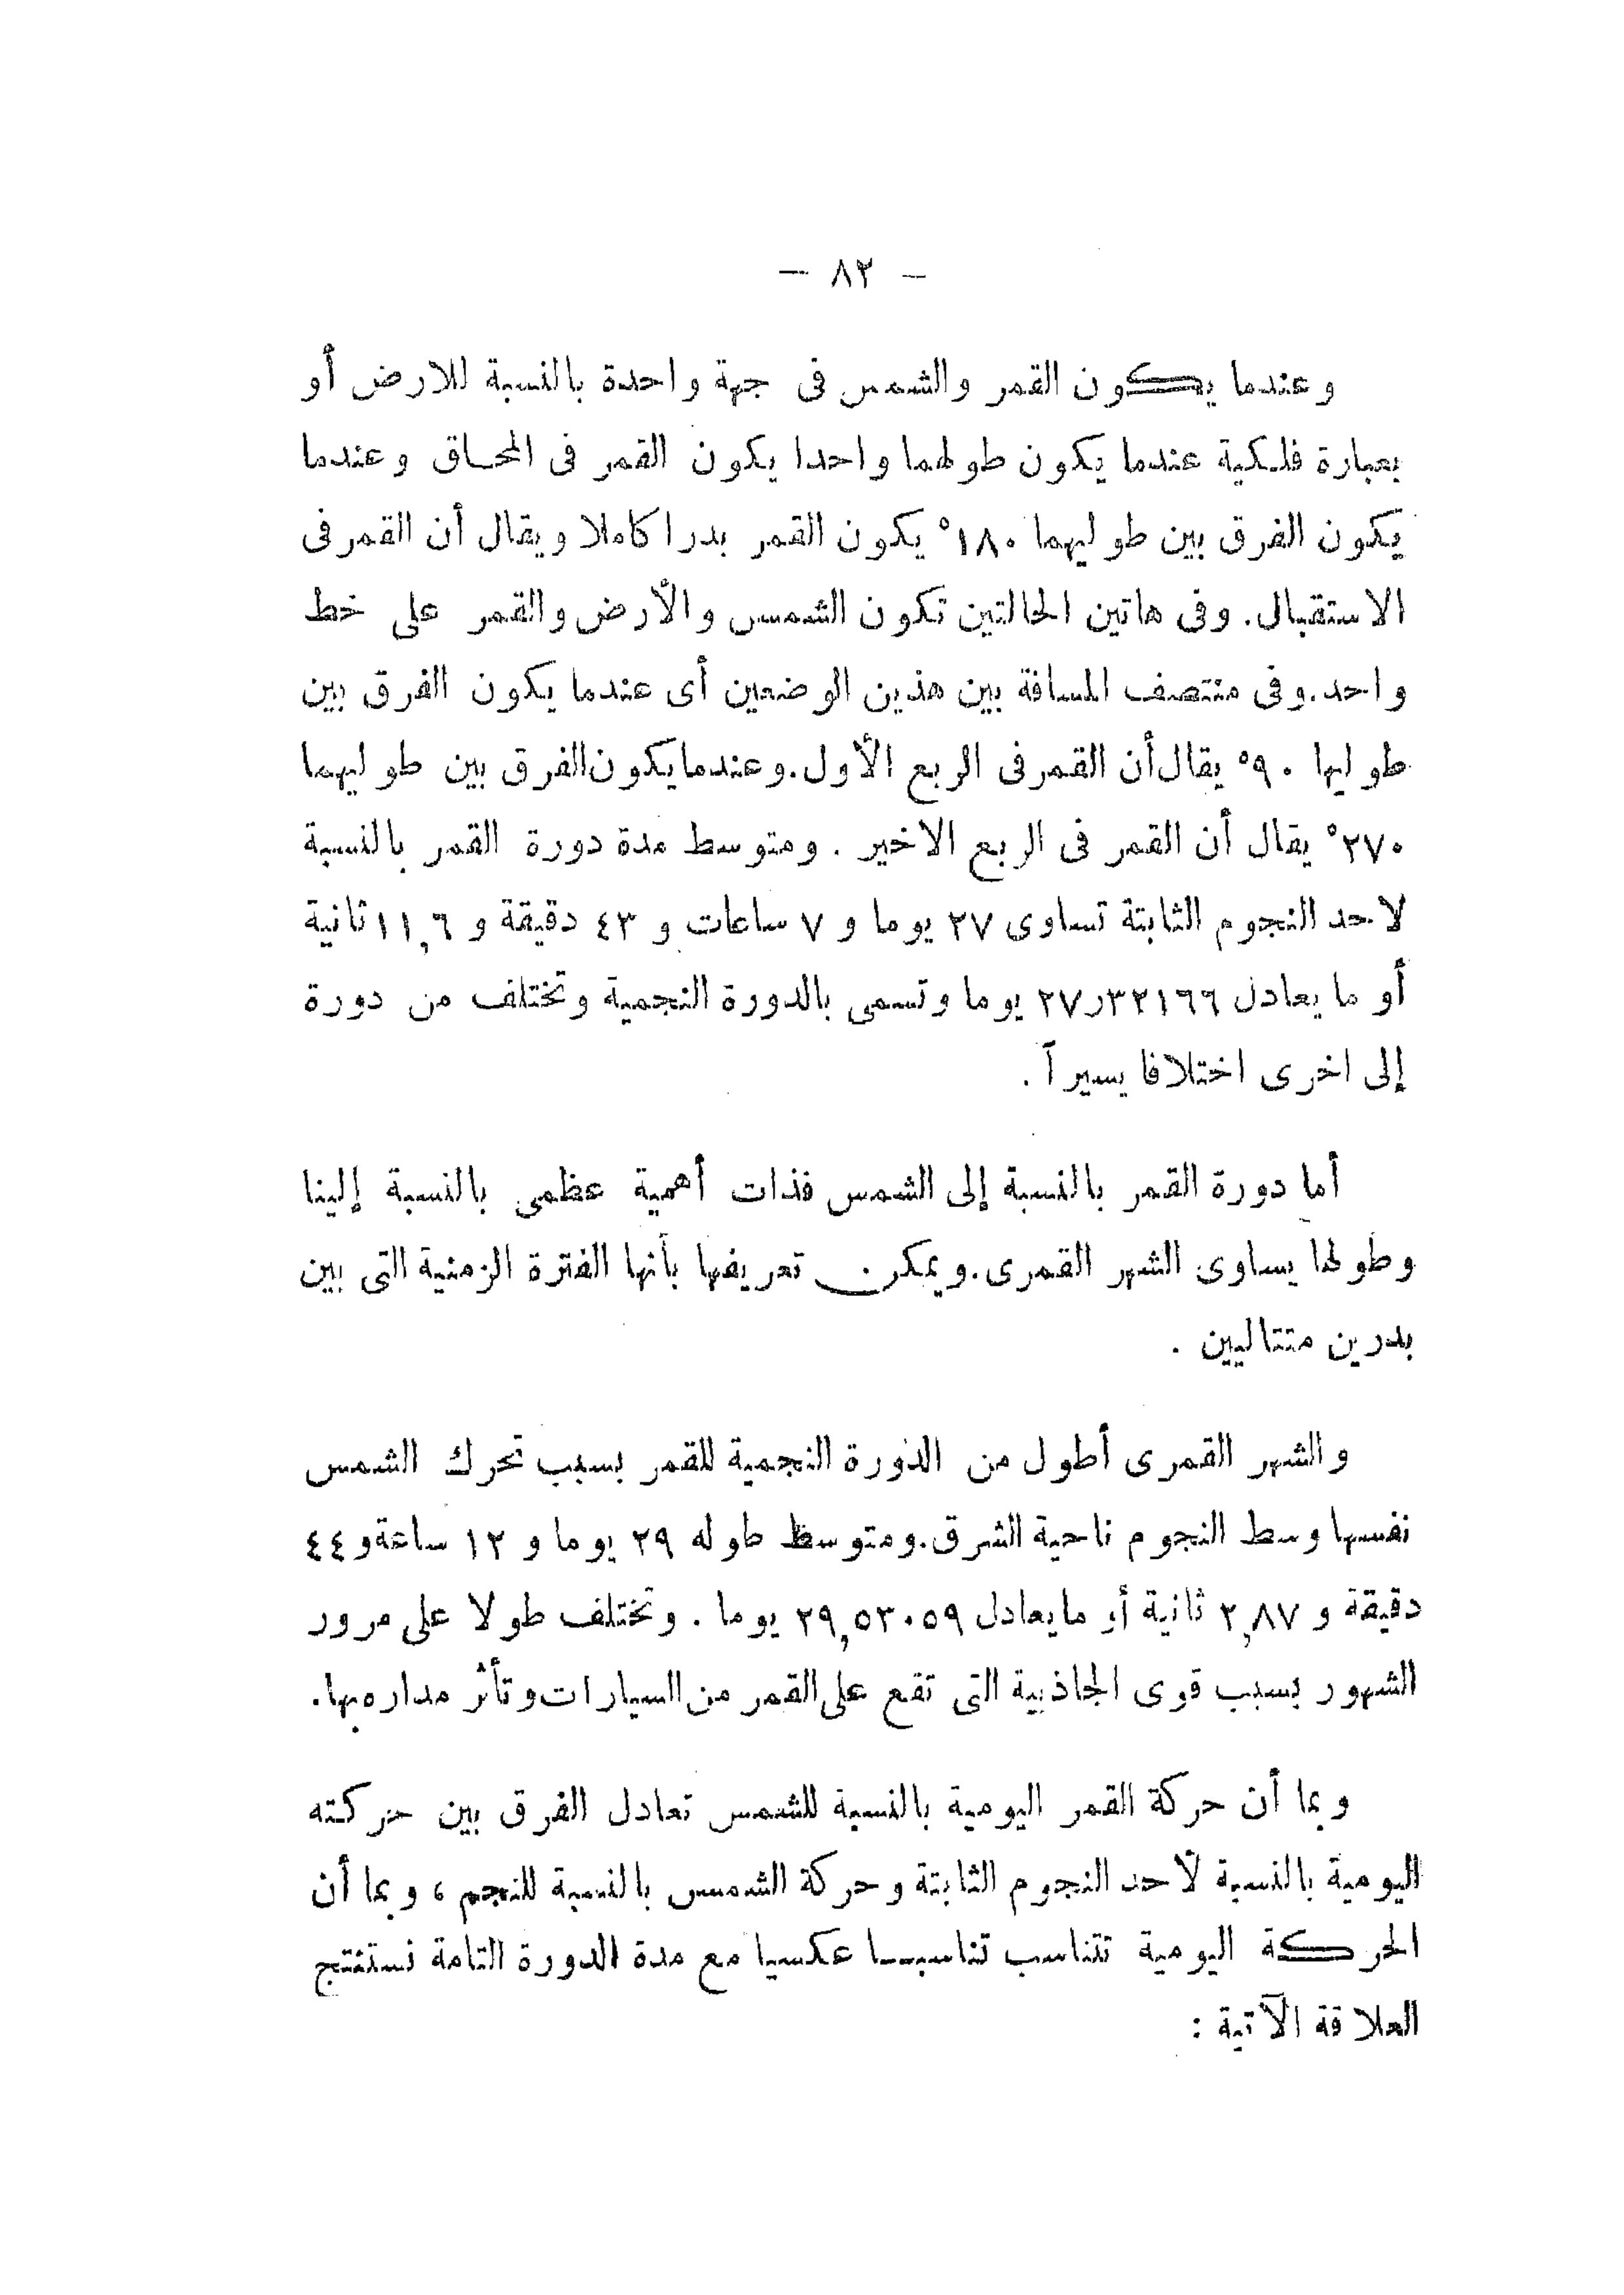 — ٨٢ —
وعندما يكون القمر والشمس فى جهة واحدة بالنسبة للارض أو
بعبارة فلكية عندما يكون طولهما واحدا يكون القمر فى المحاق وعندما
يكون الفرق بين طوليهما ١٨٠° يكون القمر بدرا كاملا ويقال أن القمر فى
الاستقبال. وفى هاتين الحالتين تكون الشمس والأرض والقمر على خط
واحد. وفى منتصف المسافة بين هذين الوضعين أى عندما يكون الفرق بين
طوليها ٩٠° يقال أن القمر فى الربع الأول. وعندما يكون الفرق بين طوليهما
٢٧٠° يقال أن القمر فى الربع الاخير . ومتوسط مدة دورة القمر بالنسبة
لاحد النجوم الثابتة تساوى ٢٧ يوما و ٧ ساعات و ٤٣ دقيقة و ١١,٦ ثانية
أو ما يعادل ٢٧٫٣٢١٦٦ يوما وتسمى بالدورة النجمية وتختلف من دورة
إلى اخرى اختلافا يسيراً .
أما دورة القمر بالنسبة إلى الشمس فذات أهمية عظمى بالنسبة إلينا
وطولها يساوى الشهر القمرى. ويمكن تعريفها بأنها الفترة الزمنية التى بين
بدرين متتاليين .
والشهر القمرى أطول من الدورة النجمية للقمر بسبب تحرك الشمس
نفسها وسط النجوم ناحية الشرق. ومتوسط طوله ٢٩ يوما و ١٢ ساعة و ٤٤
دقيقة و ٢,٨٧ ثانية أو ما يعادل ٢٩,٥٣٠٥٩ يوما . وتختلف طولا على مرور
الشهور بسبب قوى الجاذبية التى تقع على القمر من السيارات وتأثر مداره بها.
وبما أن حركة القمر اليومية بالنسبة للشمس تعادل الفرق بين حركته
اليومية بالنسبة لأحد النجوم الثابتة وحركة الشمس بالنسبة للنجم ، وبما أن
الحركة اليومية تتناسب تناسبا عكسيا مع مدة الدورة التامة نستنتج
العلاقة الآتية :